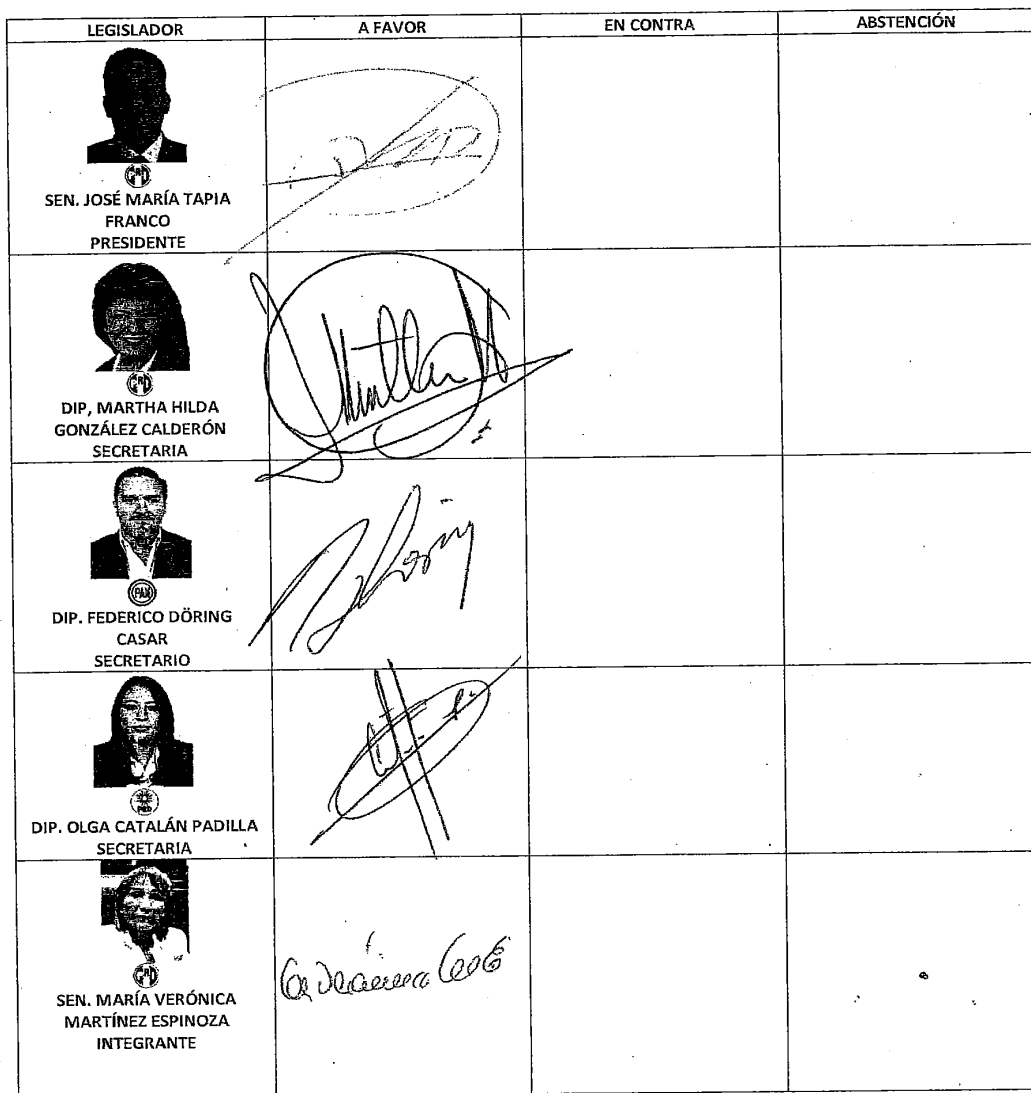 LEGISLADOR A FAVOR EN CONTRA ABSTENCIÓN
PRD
SEN. JOSÉ MARÍA TAPIA
FRANCO
PRESIDENTE
DIP, MARTHA HILDA
GONZÁLEZ CALDERÓN
SECRETARIA
PAN
DIP. FEDERICO DÖRING
CASAR
SECRETARIO
PRD
DIP. OLGA CATALÁN PADILLA
SECRETARIA
SEN. MARÍA VERÓNICA
MARTÍNEZ ESPINOZA
INTEGRANTE